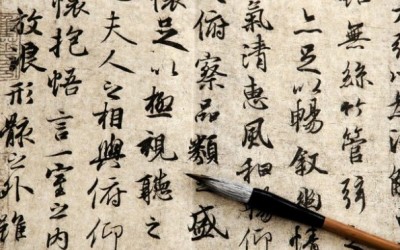 無絲竹管弦
亦足以暢叙幽情
氣清惠風和暢仰
大俯察品類盛
懷足以極視聽之
夫人之相與俯仰
懷抱悟言一室之内
放浪形骸之外雖